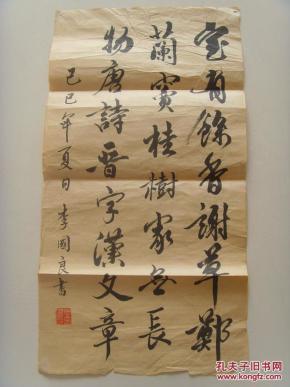 室有餘香謝草鄭
蘭竇桂樹家無長
物唐詩晋字漢文章
己巳年夏日 李國良書
孔夫子旧书网